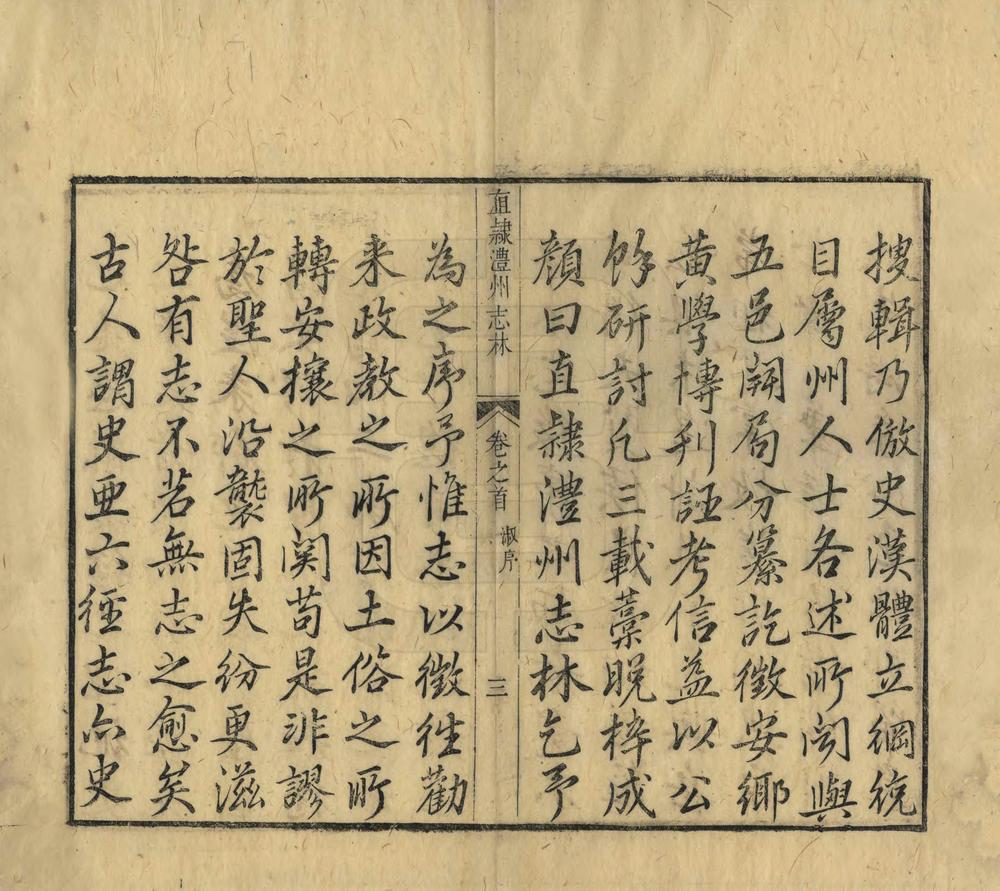 搜輯乃倣史漢體立綱統
目屬州人士各述所闻與
五邑開局分纂訖徵安鄉
黄學博刋誣考信益以公
餘研討凡三載藁脱梓成
顔曰直隷澧州志林乞予
直隷澧州志林 卷之首 淑序 三
為之序予惟志以徵徃勸
来政教之所因土俗之所
轉安攘之所関苟是非謬
於聖人沿襲固失纷更滋
咎有志不若無志之愈矣
古人謂史亜六經志亦史